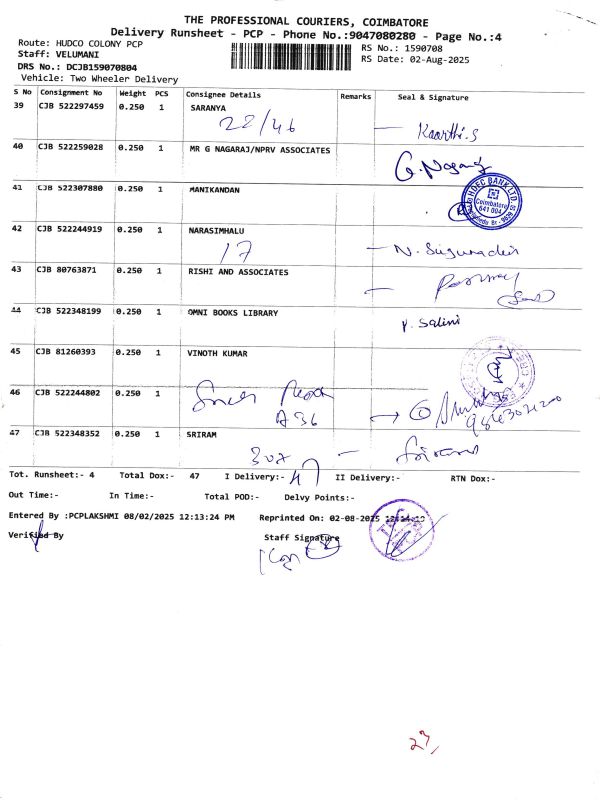 THE PROFESSIONAL COURIERS, COIMBATORE
Delivery Runsheet - PCP - Phone No.:9047080280 - Page No.:4
Route: HUDCO COLONY PCP
RS No.: 1590708
Staff: VELUMANI
RS Date: 02-Aug-2025
DRS No.: DCJB159070804
Vehicle: Two Wheeler Delivery
S No Consignment No Weight PCS Consignee Details Remarks Seal & Signature
39 CJB 522297459 0.250 1 SARANYA
22/46 Kaarthi.S
40 CJB 522259028 0.250 1 MR G NAGARAJ/NPRV ASSOCIATES
G. Nagaraj
41 CJB 522307880 0.250 1 MANIKANDAN
HDFC BANK LTD.
Coimbatore
641 004
42 CJB 522244919 0.250 1 NARASIMHALU
17
43 CJB 80763871 0.250 1 RISHI AND ASSOCIATES
44 CJB 522348199 0.250 1 OMNI BOOKS LIBRARY
V. Salini
45 CJB 81260393 0.250 1 VINOTH KUMAR
46 CJB 522244802 0.250 1
A 36
47 CJB 522348352 0.250 1 SRIRAM
307
Tot. Runsheet:- 4 Total Dox:- 47 I Delivery:- 47 II Delivery:- RTN Dox:-
Out Time:- In Time:- Total POD:- Delvy Points:-
Entered By :PCPLAKSHMI 08/02/2025 12:13:24 PM Reprinted On: 02-08-2025
Verified By Staff Signature
23,